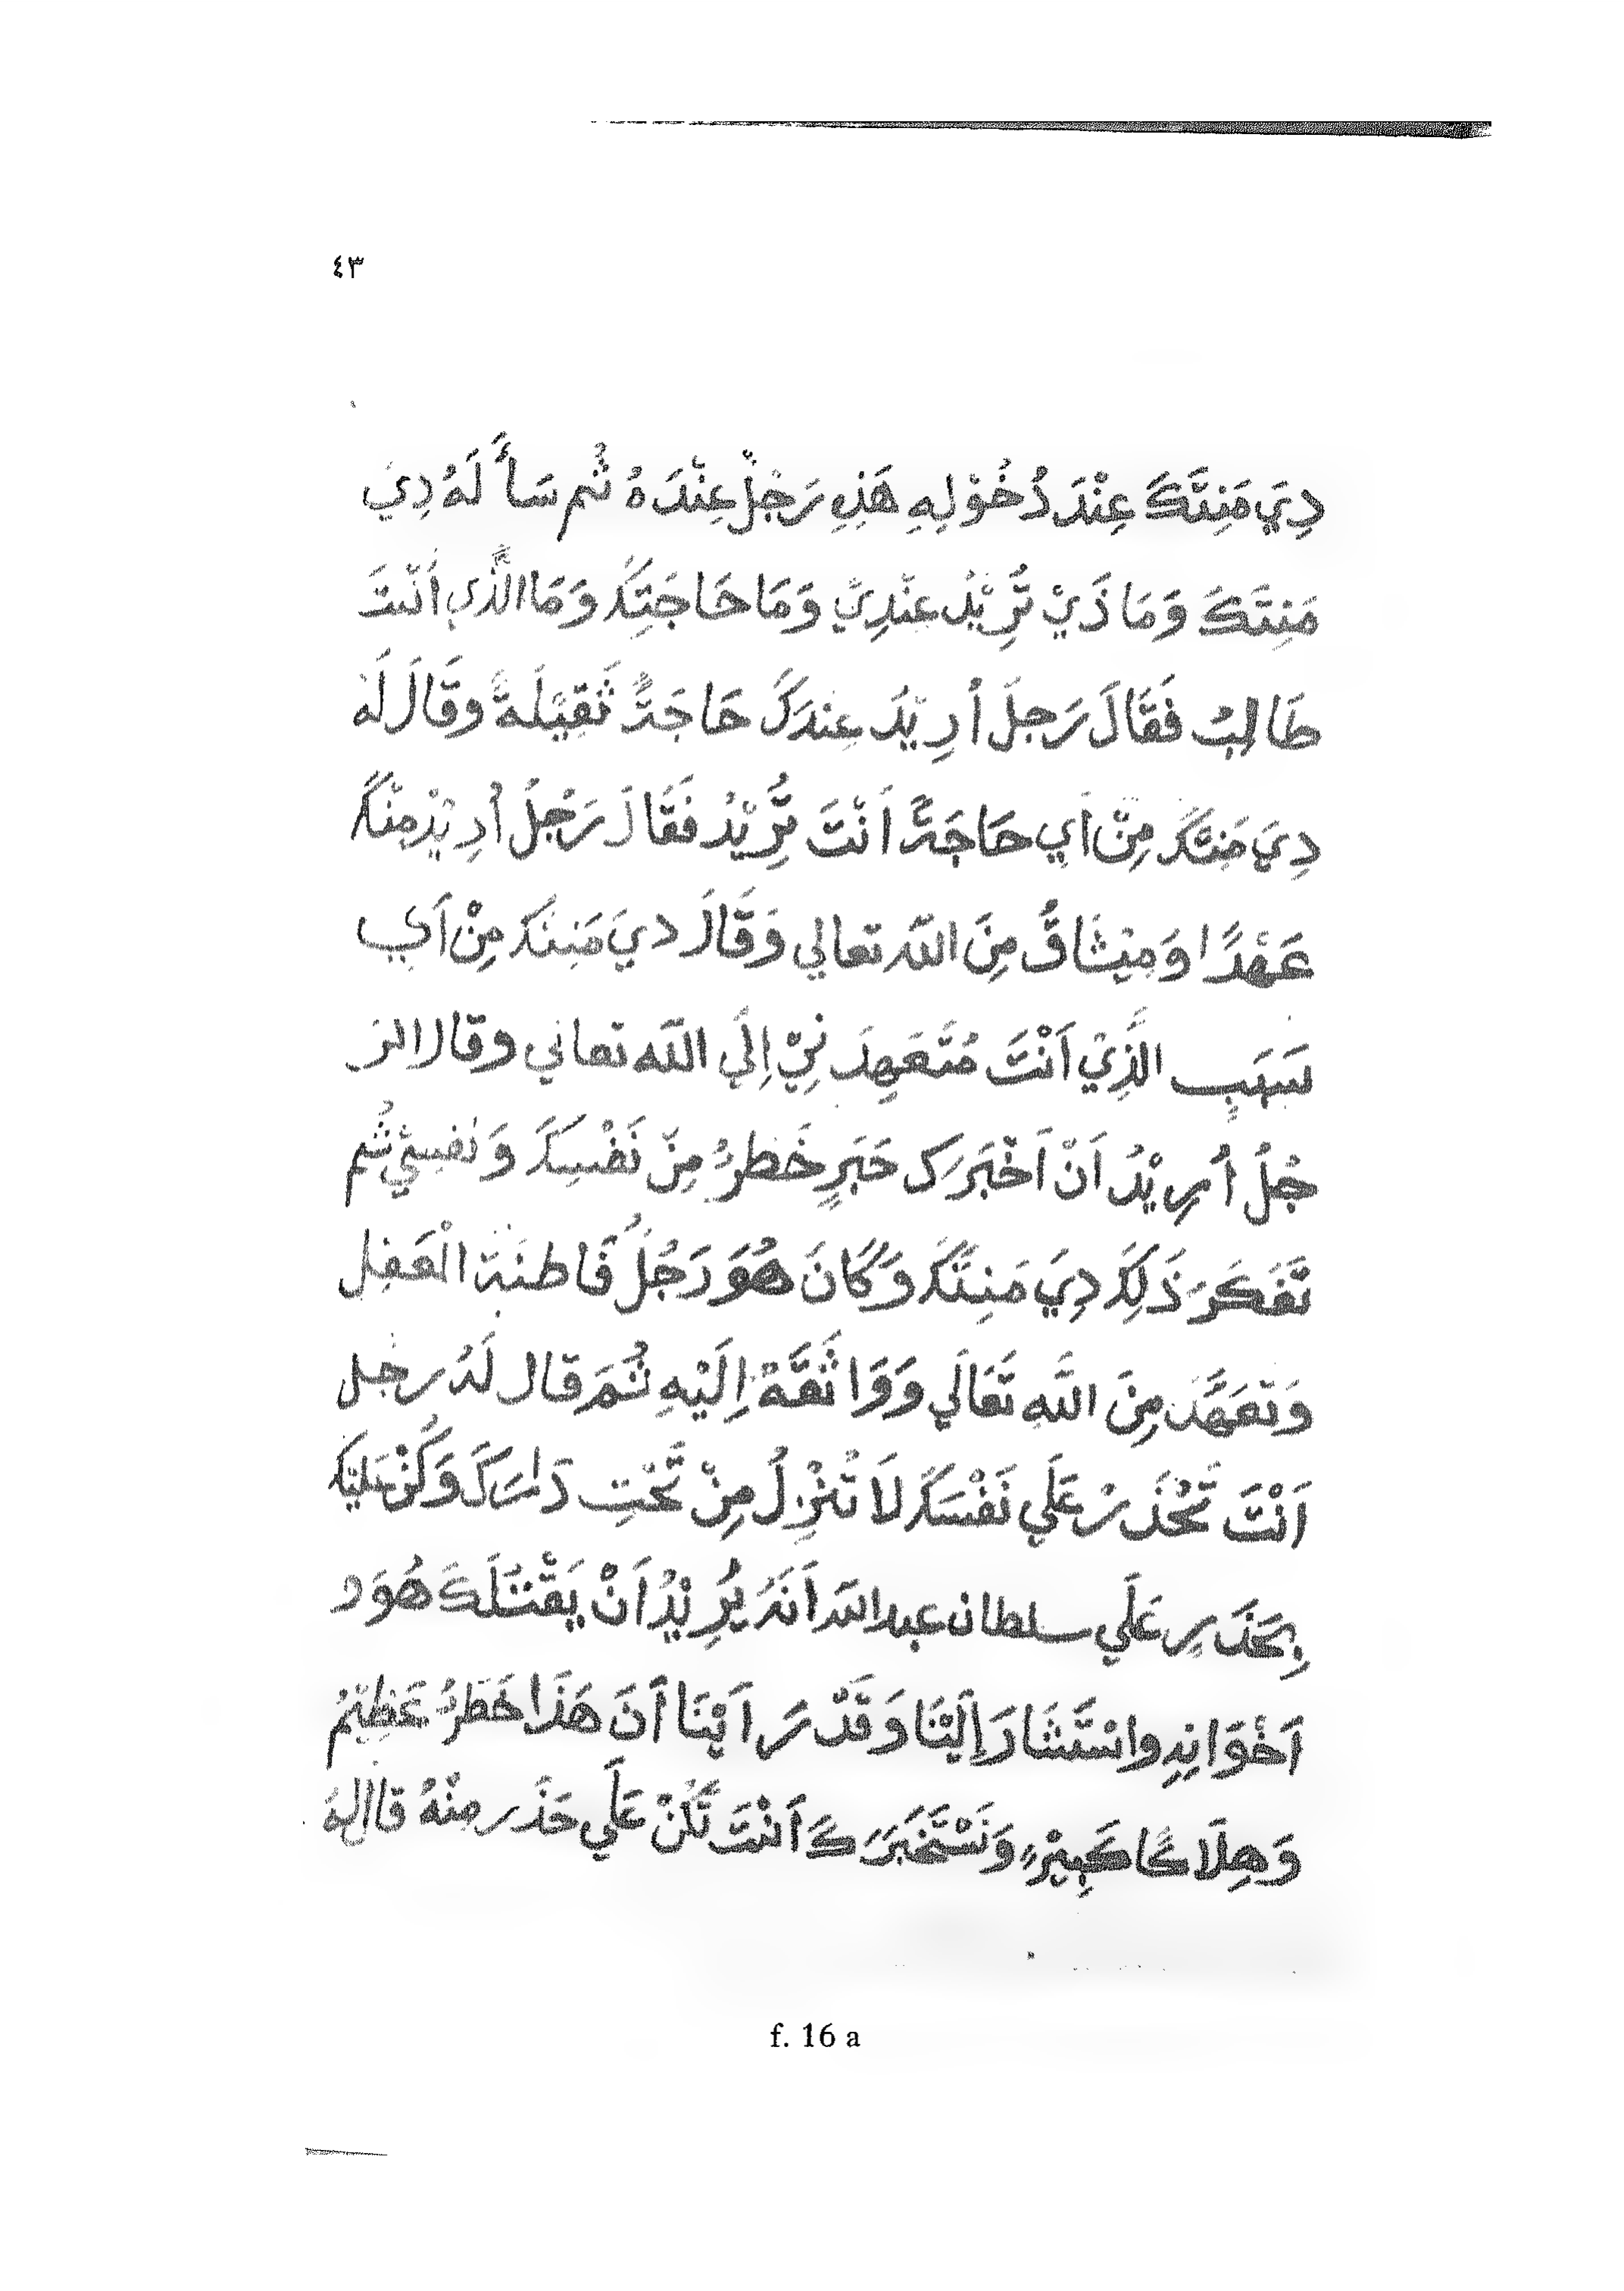 ٤٣
دِيَ مَنِتَّكَ عِنْدَ دُخُوْلِهِ هَذِهِ رَجُلٌ عِنْدَهُ ثُم سَأَلَهُ دِيَ
مَنِتَكَ وَمَا ذَيْ تُرِيْدُ عِنْدِيْ وَمَا حَاجَتِكَ وَمَا الَّذِي اَنْتَ
طَالِبُ فَقَالَ رَجِلَ أُرِيْدَ عِندَكَ حَاجَةً ثَقِيْلَةً وقَالَ لَهُ
دِيَ مَنِتَّكَ مِنْ اَي حَاجَةً اَنْتَ تُرِيْدُ فَقَالَ رَجُلُ أُرِيْدُ مِنْكَ
عَهْدًا وَمِيْثَاقُ مِنَ اللّه تعالي وَقَالَ دِيَ مَنِتَكَ مِنْ اَيِ
سَبَبِ الَّذِيْ اَنْتَ مُتَعَهِدَ نِيْ اِلَي اللّه تعالي وقال الر
جُلُ أُرِيْدُ اَنْ اَخْبَرَكَ خَبَرٍ خَطَرُ مِنْ نَفْسِكَ وَنَفْسِيْ ثُم
تَفَكَرَ ذَلِكَ دِيَ مَنِتَّكَ وَكَانَ هُوَ رَجُلُ فَاطنَة الْعَقِل
وَتَعَهَّدَ مِنَ اللَّهِ تَعَالَي وَوَاثَقَةْ اِلَيْهِ ثُمَ قال لَهُ رجل
اَنْتَ تَحْذَرْ عَلَي نَفْسَكَ لَا تُنْزِلُ مِنْ تَحْتِ دَارَكَ وَكُنْ عَلَيْكَ
بِحَذَرٍ عَلَي سلطان عبد اللّه اَنَهُ يُرِيْدُ اَنْ يَقْتُلَكَ هُوَ و
اَخْوَانِهِ واسْتَشَارَ اِلَيْنَا وَقَدْ رَاَيْنَا أَنَ هَذَا خَطَرُ عَظِيْمُ
وَهِلَاكًا كَبِيْرٍ وَنَسْتَخْبَرَكَ اَنْتَ تَكُنْ عَلَي حَذَر مِنْهُ قال لهُ
f. 16 a